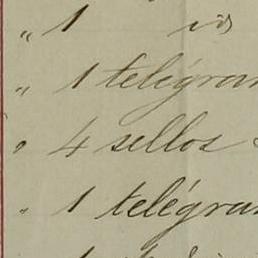 " 1 id
" 1 telégram
" 4 sellos
" 1 telégram